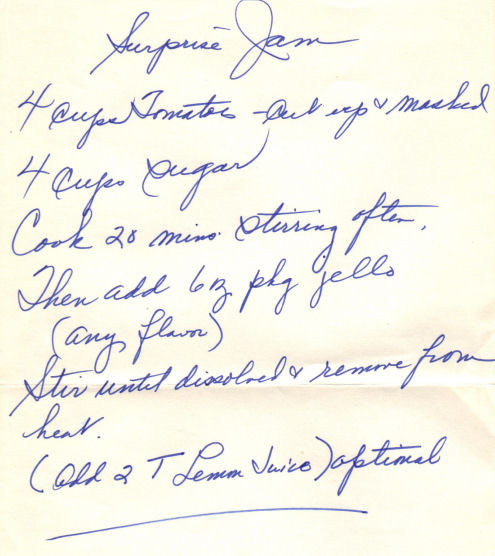 Surprise Jam
4 cups Tomatoes - cut up & mashed
4 cups sugar
Cook 20 mins. stirring often.
Then add 6 oz pkg jello
(any flavor)
Stir until dissolved & remove from
heat.
(Add 2 T Lemon Juice) optional